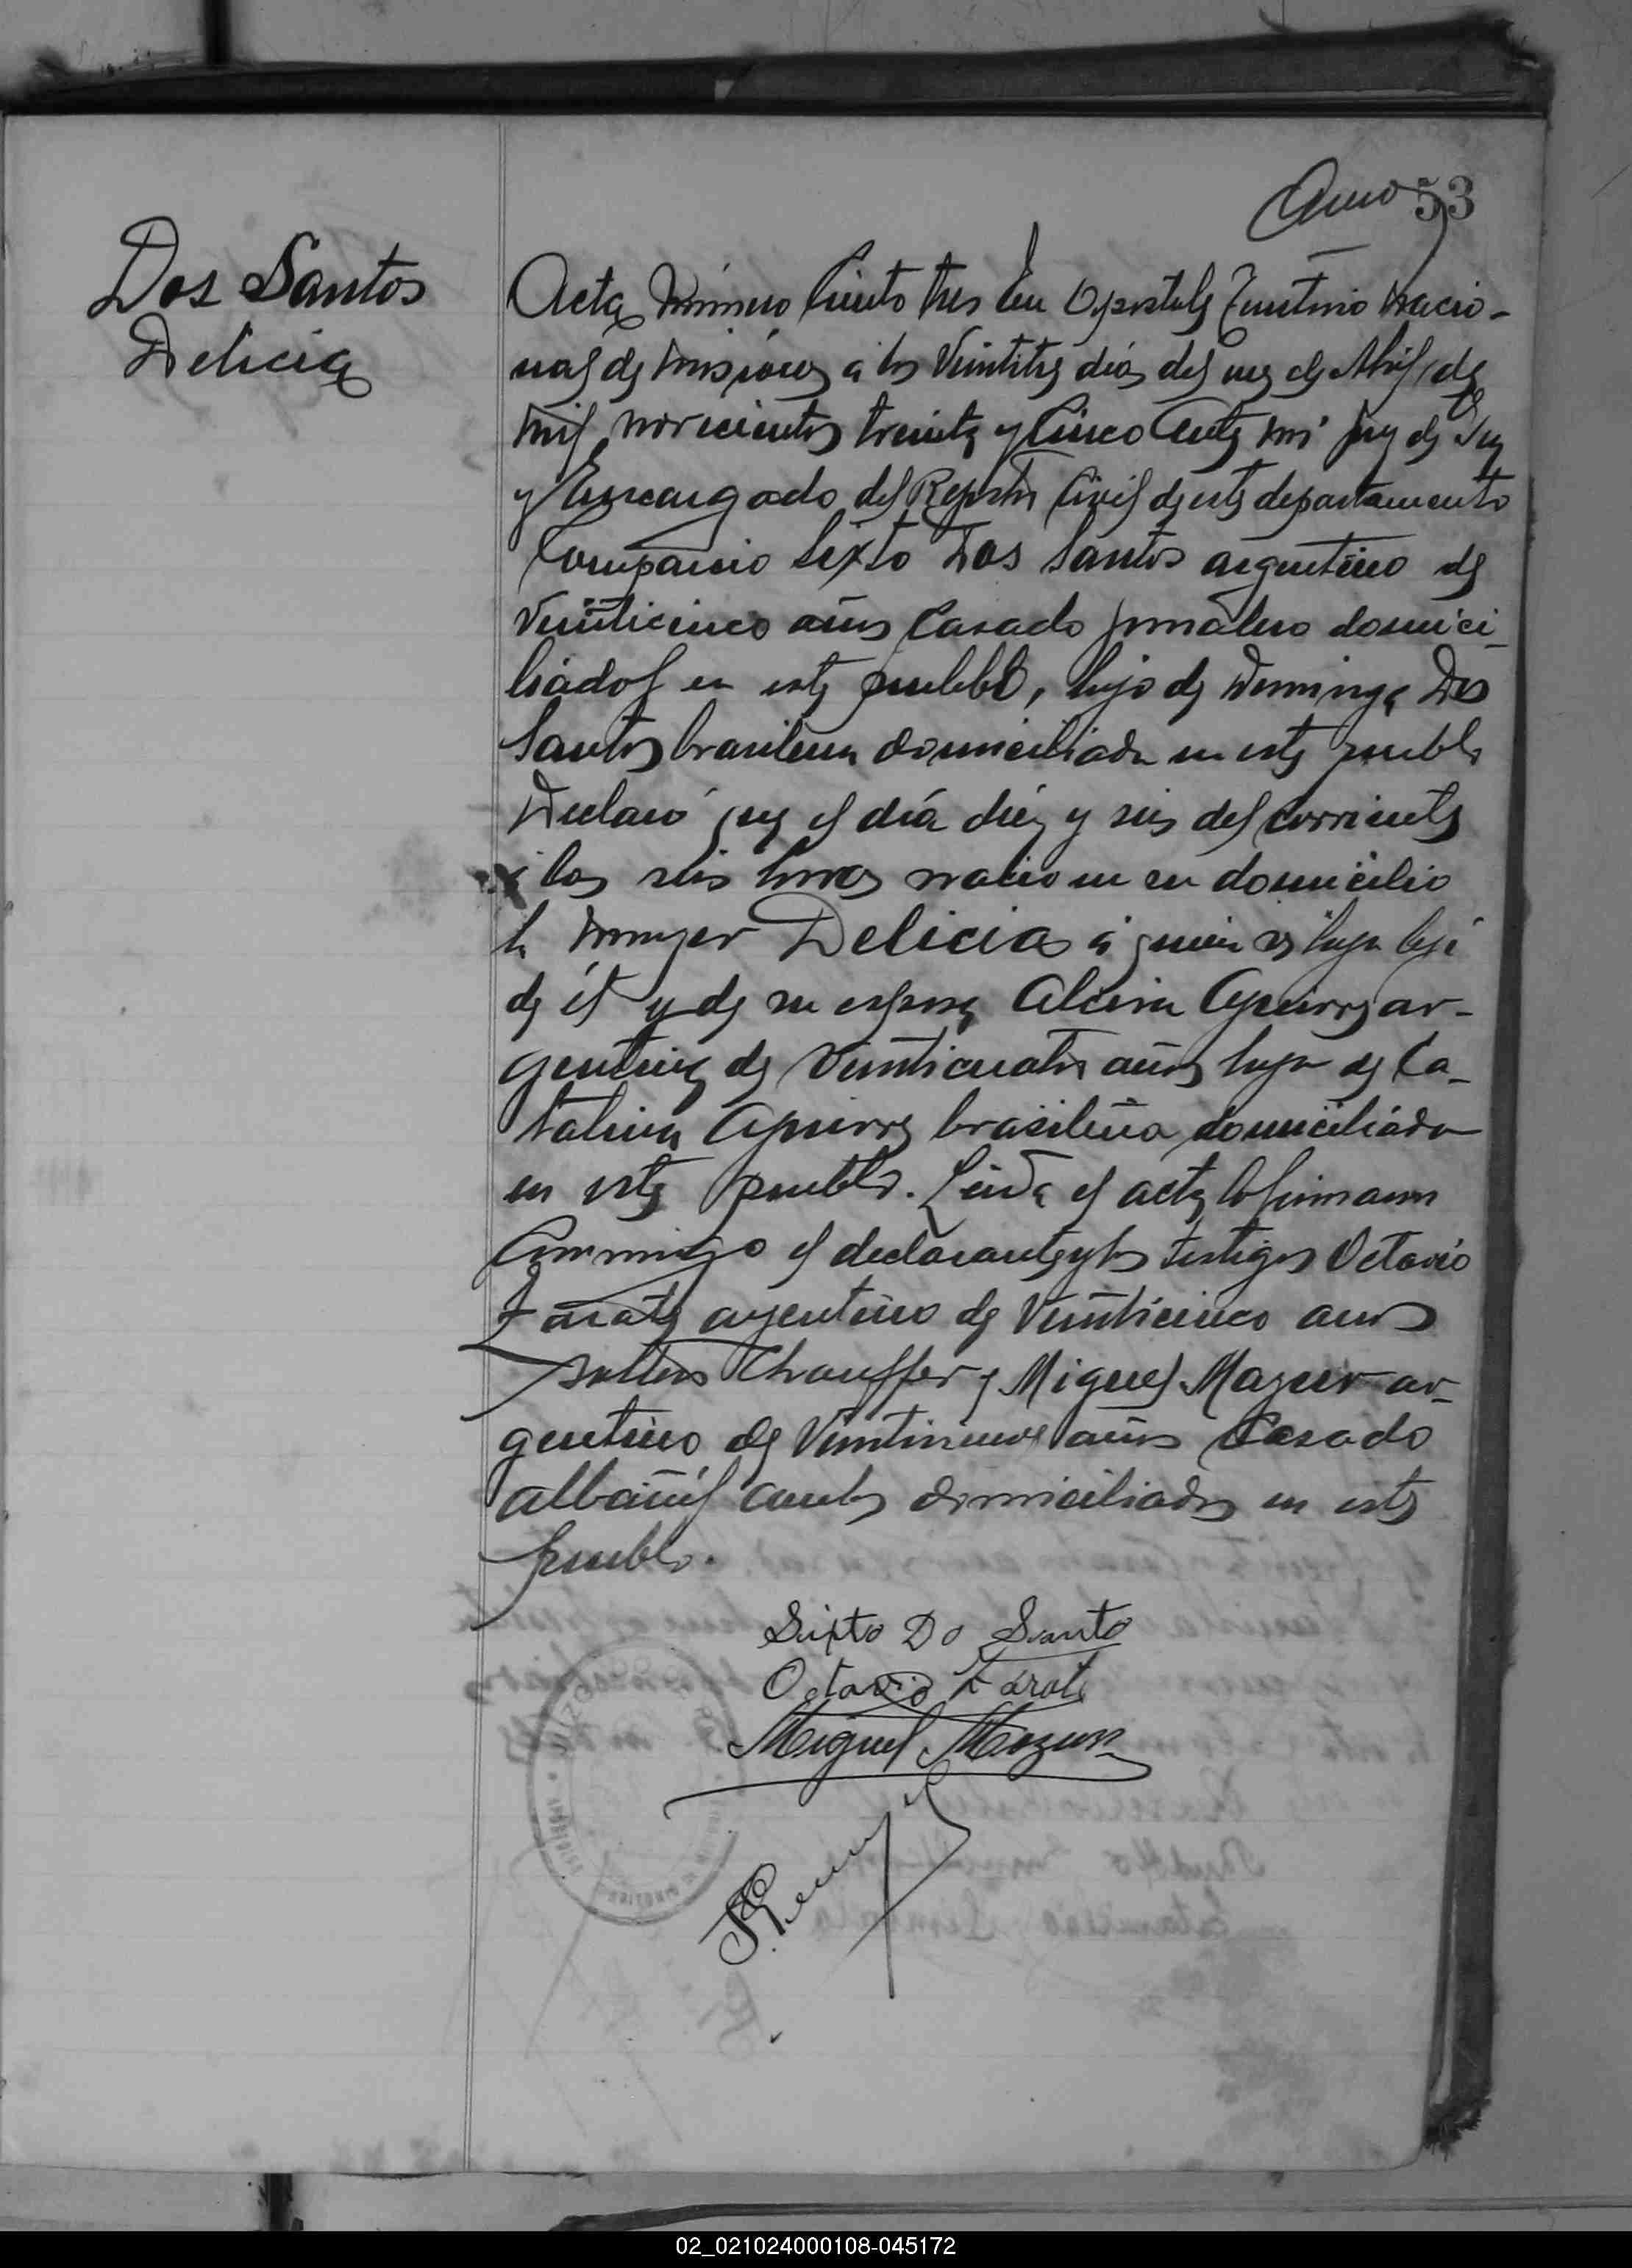 53
Dos Santos
Delicia
Acta Número Ciento tres En Apostoles Territorio Nacio-
nal de Misiones a los Veintitres días del mes de Abril de
mil novecientos treinta y Cinco Ante mi Juez de Paz
y Encargado del Registro Civil de este departamento
Compareció Sixto Dos Santos argentino de
Veinticinco años Casado jornalero domici-
liado en este pueblo, hijo de Dominga Dos
Santos brasilera domiciliada en este pueblo
Declaró que el día diez y seis del corriente
a las seis horas nació en su domicilio
la mujer Delicia a quien es hija
de él y de su esposa Alcira Aguirre ar-
gentina de Veinticuatro años hija de Ca-
talina Aguirre brasileña domiciliada
en este pueblo. Leida el acta la firmaron
Conmigo el declarante y los testigos Octavio
Zarate argentino de Veinticinco años
soltero Chauffer y Miguel Mazur ar-
gentino de Veintinueve años Casado
albañil ambos domiciliados en este
pueblo.
Sixto Do Santo
Octavio Zarate
Miguel Mazur
02_021024000108-045172